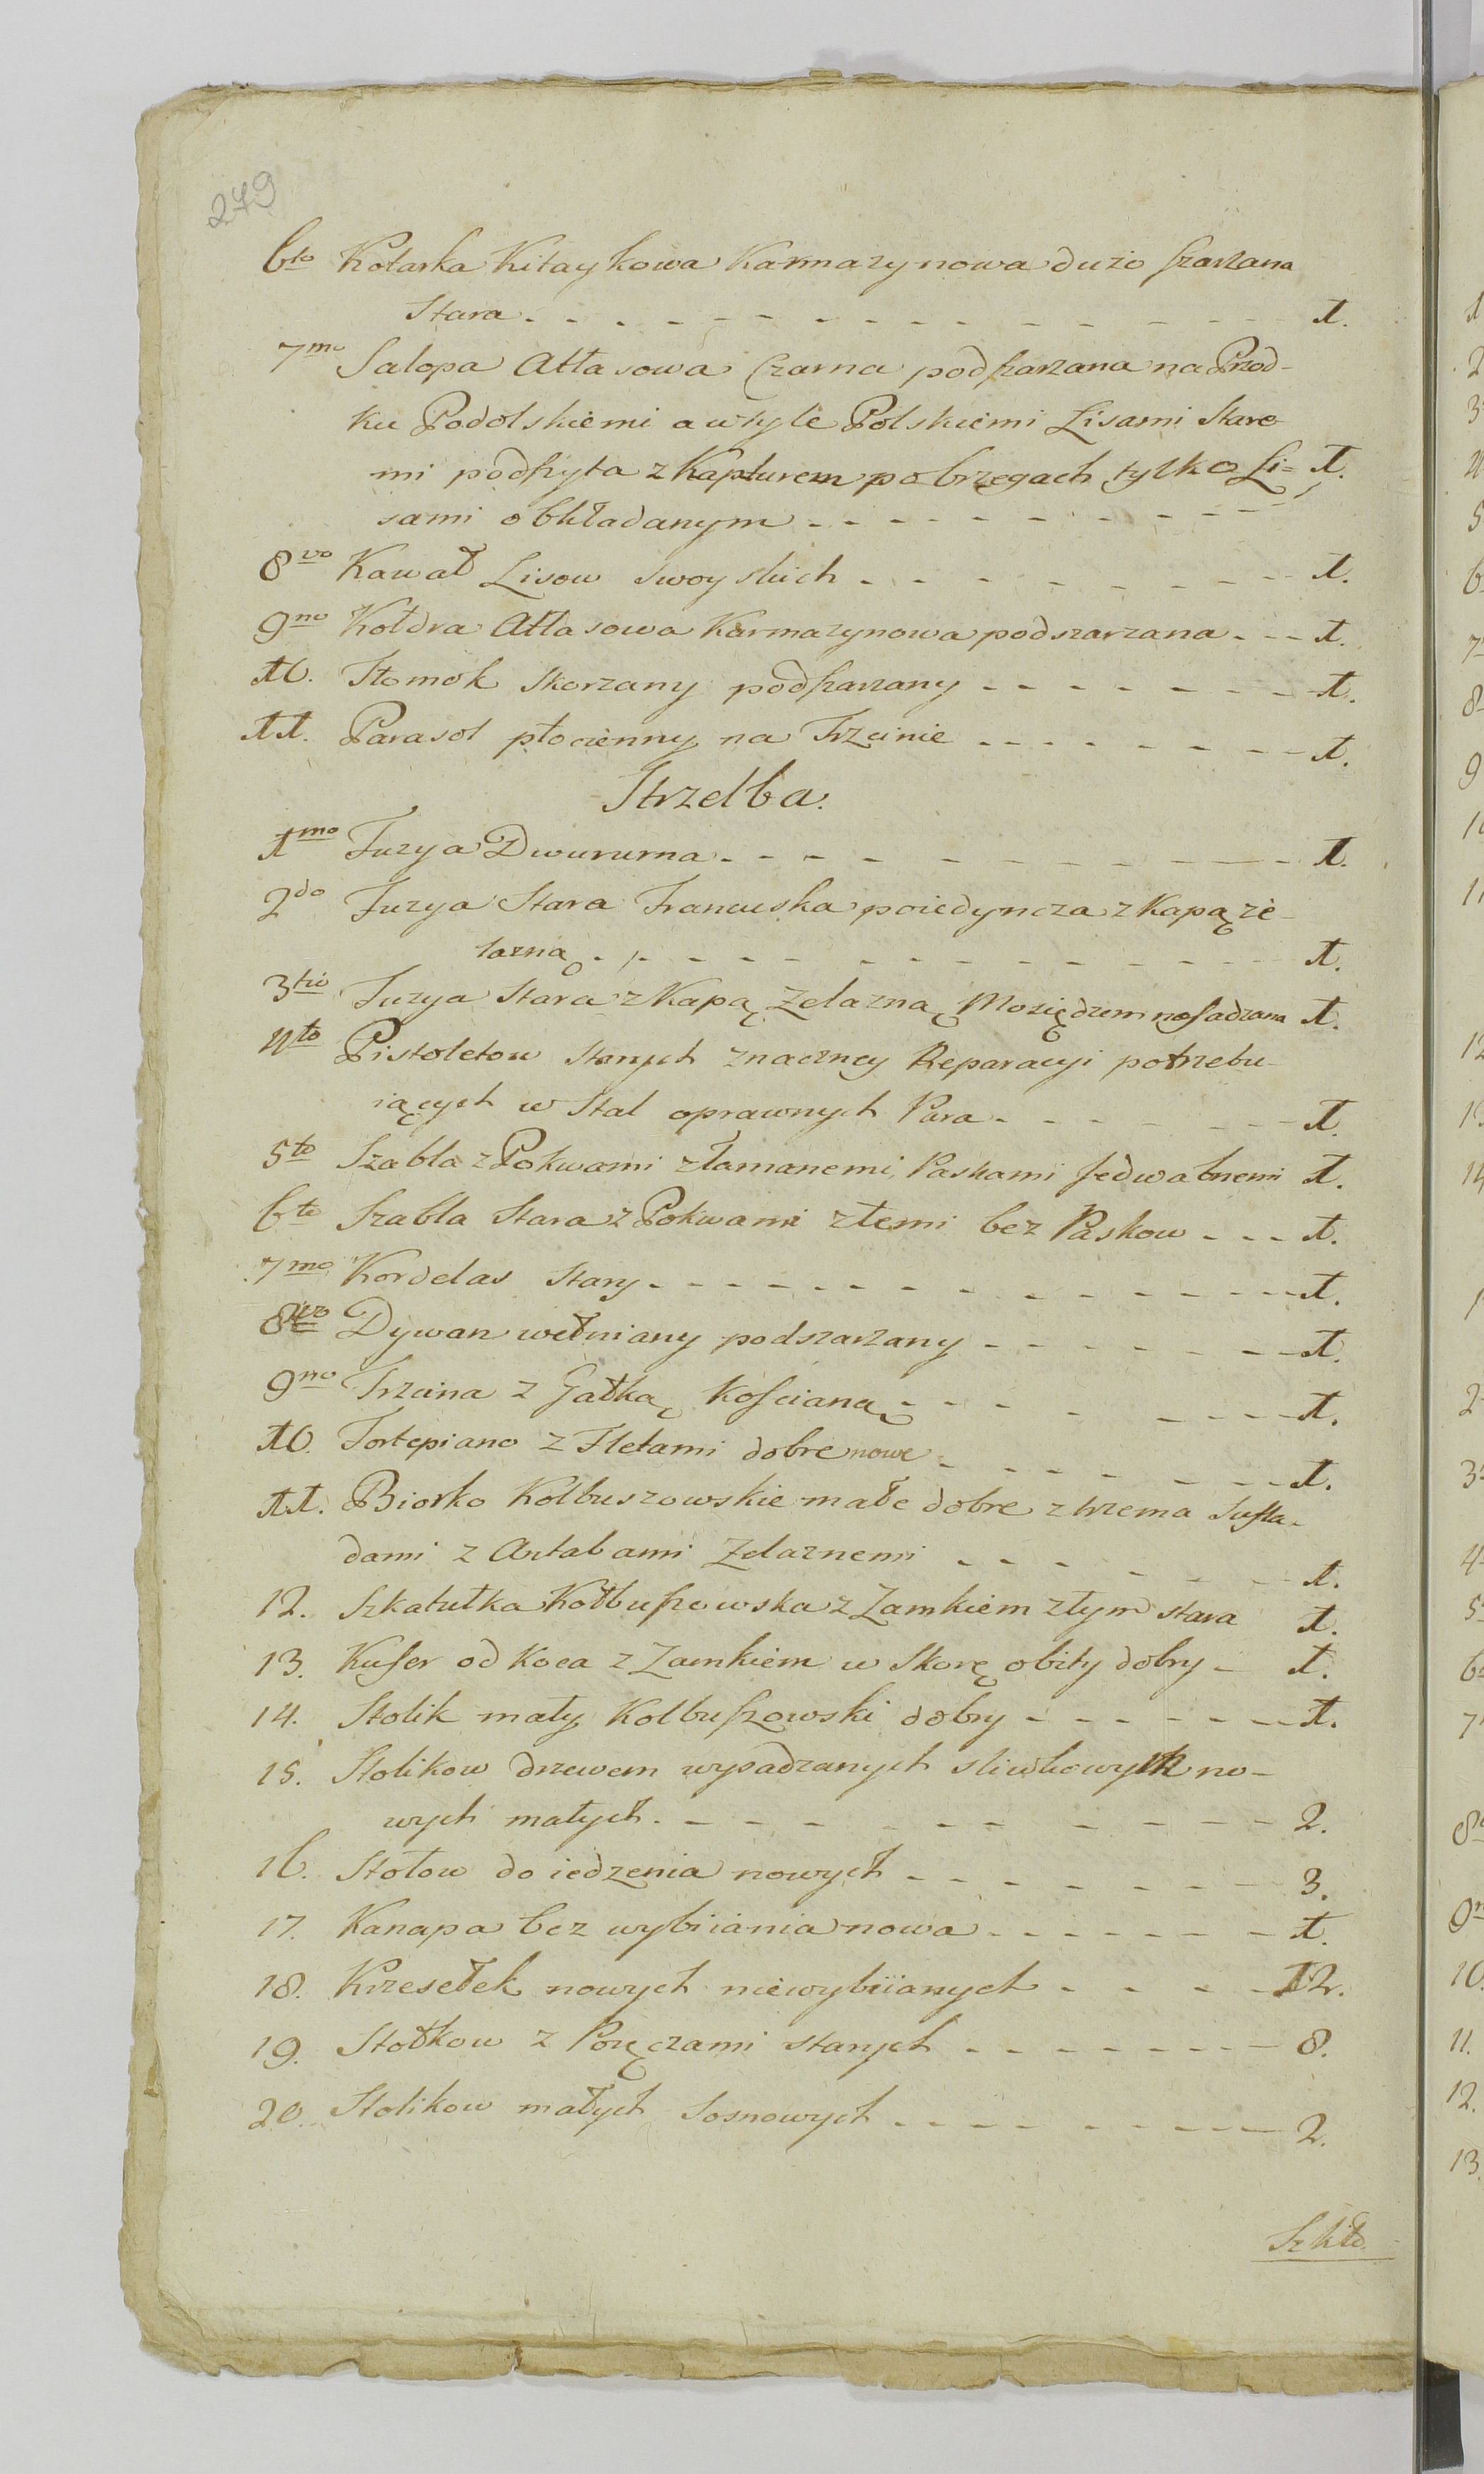 279
6to Kotarka Kitaykowa Karmazynowa dużo szarzana
Stara - - - 1.
7mo Salopa Atłasowa Czarna podszarzana na Przod-
ku Podolskiemi a w tyle Polskiemi Lisami Stare-
mi podszyta z Kapturem po brzegach tylko Li= 1.
sami obkładanym - - -
8vo Kawał Lisow swoyskich - - - 1.
9no Kołdra Atłasowa Karmazynowa podszarzana - - - 1.
10. Tłomok Skorzany podszarzany - - - 1.
11. Parasol płocienny na Trzcinie - - - 1.
Strzelba.
1mo Fuzya Dwururna - - - 1.
2do Fuzya Stara Francuska poiedyncza z Kapą że-
lazną - - - 1.
3tio Fuzya Stara z Kapą Zelazną Mosiędzem nasadzana 1.
4to Pistoletow Starych znaczney Reparacyi potrzebu-
iących w Stal oprawnych Para - - - 1.
5to Szabla z Pokwami złamanemi, Paskami Jedwabnemi 1.
6to Szabla Stara z Pokwami złemi bez Paskow - - - 1.
7mo Kordelas Stary - - - 1.
8vo Dywan wełniany podszarzany - - - 1.
9no Trzcina z Gałką Kościaną - - - 1.
10. Fortepiano z Fletami dobre nowe - - - 1.
11. Biorko Kolbuszowskie małe dobre z trzema Szufla-
dami z Antabami Zelaznemi - - - 1.
12. Szkatułka Kolbuszowska z Zamkiem złym stara 1.
13. Kufer od Koca z Zamkiem w Skorę obity dobry - 1.
14. Stolik mały Kolbuszowski dobry - - - 1.
15. Stolikow drzewem wysadzanych sliwkowych no-
wych małych - - - 2.
16. Stołow do iedzenia nowych - - - 3.
17. Kanapa bez wybiiania nowa - - - 1.
18. Krzesełek nowych niewybiianych - - - 12.
19. Stołkow z Poręczami starych - - - 8.
20. Stolikow małych Sosnowych - - - 2.
Szkło